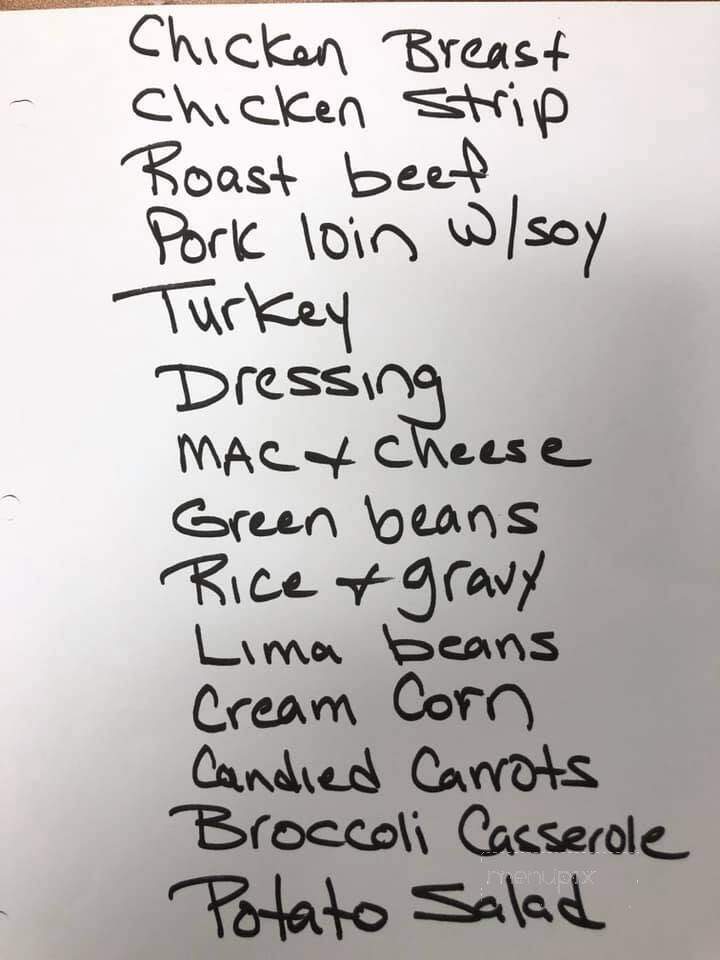 Chicken Breast
Chicken Strip
Roast beef
Pork loin w/soy
Turkey
Dressing
MAC + Cheese
Green beans
Rice + gravy
Lima beans
Cream Corn
Candied Carrots
Broccoli Casserole
menupix
Potato Salad